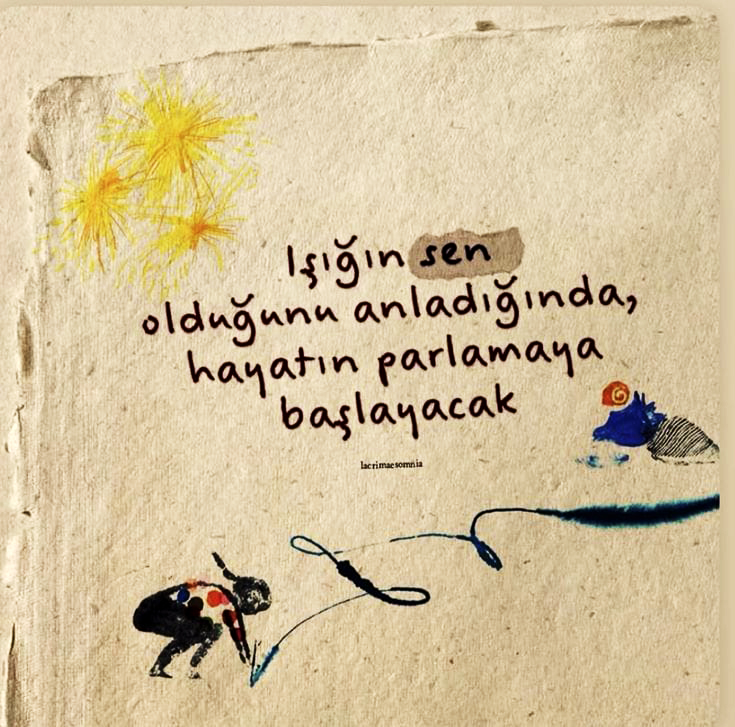 Işığın sen
olduğunu anladığında,
hayatın parlamaya
başlayacak
lacrimaesomnia